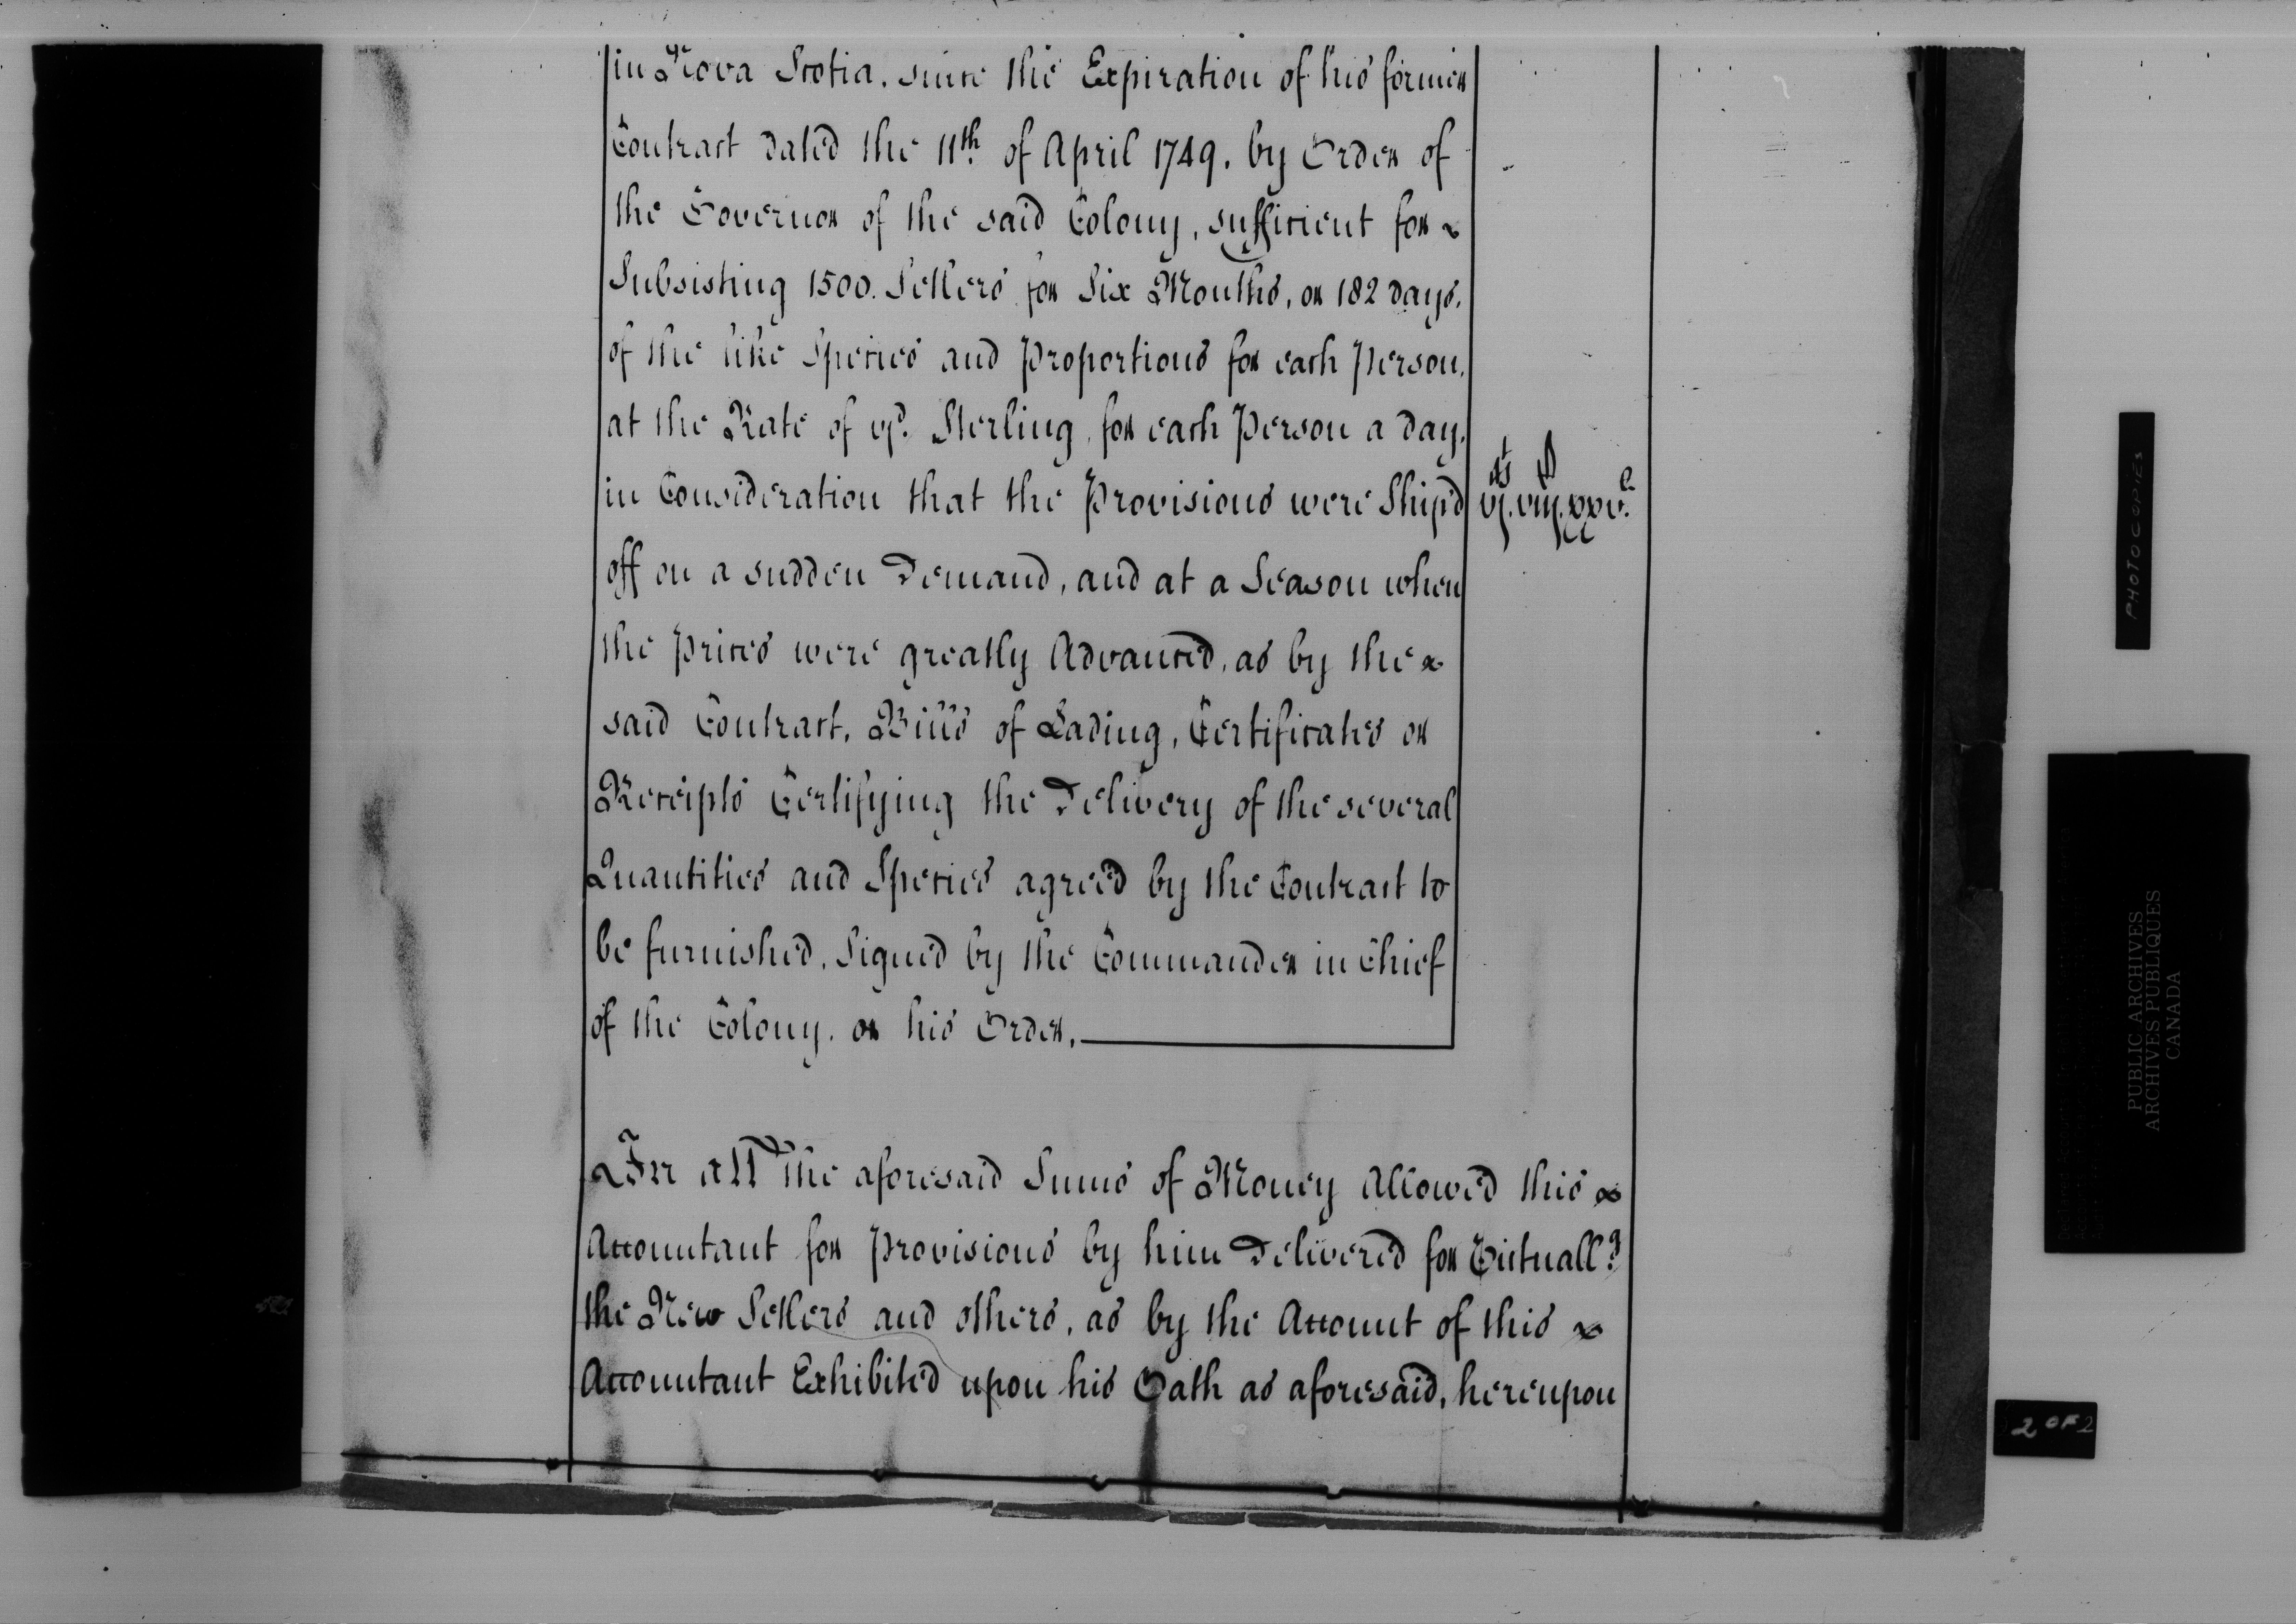 in Nova Scotia, since the Expiration of his former
Contract dated the 11th. of April 1749, by Order of
the Governor of the said Colony, sufficient for
Subsisting 1500. Settlers for Six Months, or 182 days,
of the like Species and Proportions for each Person,
at the Rate of vjd. Sterling, for each Person a day,
in Consideration that the Provisions were Ship'd
vj. viij. xxv.
off on a sudden Demand, and at a Season when
the Prices were greatly Advanced, as by the
said Contract, Bills of Lading, Certificates or
Receipts Certifying the Delivery of the several
Quantities and Species agreed by the Contract to
be furnished, Signed by the Commander in Chief
of the Colony, or his Order,
In all the aforesaid Sums of Money Allowed this
Accountant for Provisions by him Delivered for Victuall.g
the New Settlers and others, as by the Account of this
Accountant Exhibited upon his Oath as aforesaid, hereupon
PHOTOCOPIES
PUBLIC ARCHIVES
ARCHIVES PUBLIQUES
CANADA
2 OF 2